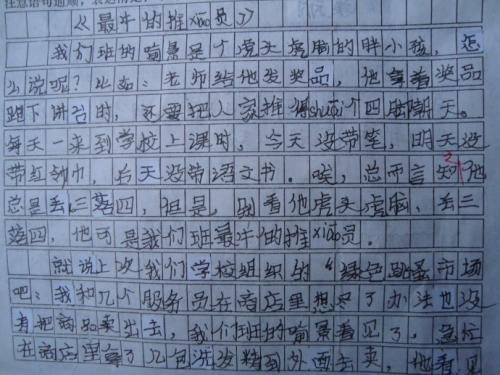 《最牛的推xiāo员》
我们班的喻景是个虎头虎脑的胖小孩，怎
么说呢？比如：老师给他发奖品，他拿着奖品
跑下讲台时，还要把人家推得shuāi个四脚朝天。
每天一来到学校上课时，今天没带笔，明天没
带红领巾，后天没带语文书。唉，总而言之，他
总是丢三落四，但是，别看他虎头虎脑、丢三
落四，他可是我们班最牛的推xiāo员。
就说上次我们学校组织的“绿色跳蚤市场
吧：我和几个服务员在商店里想尽了办法也没
有把商品卖出去，我们班的喻景看见了，急忙
在商店里拿了几包洗发精到外面去卖，他看见